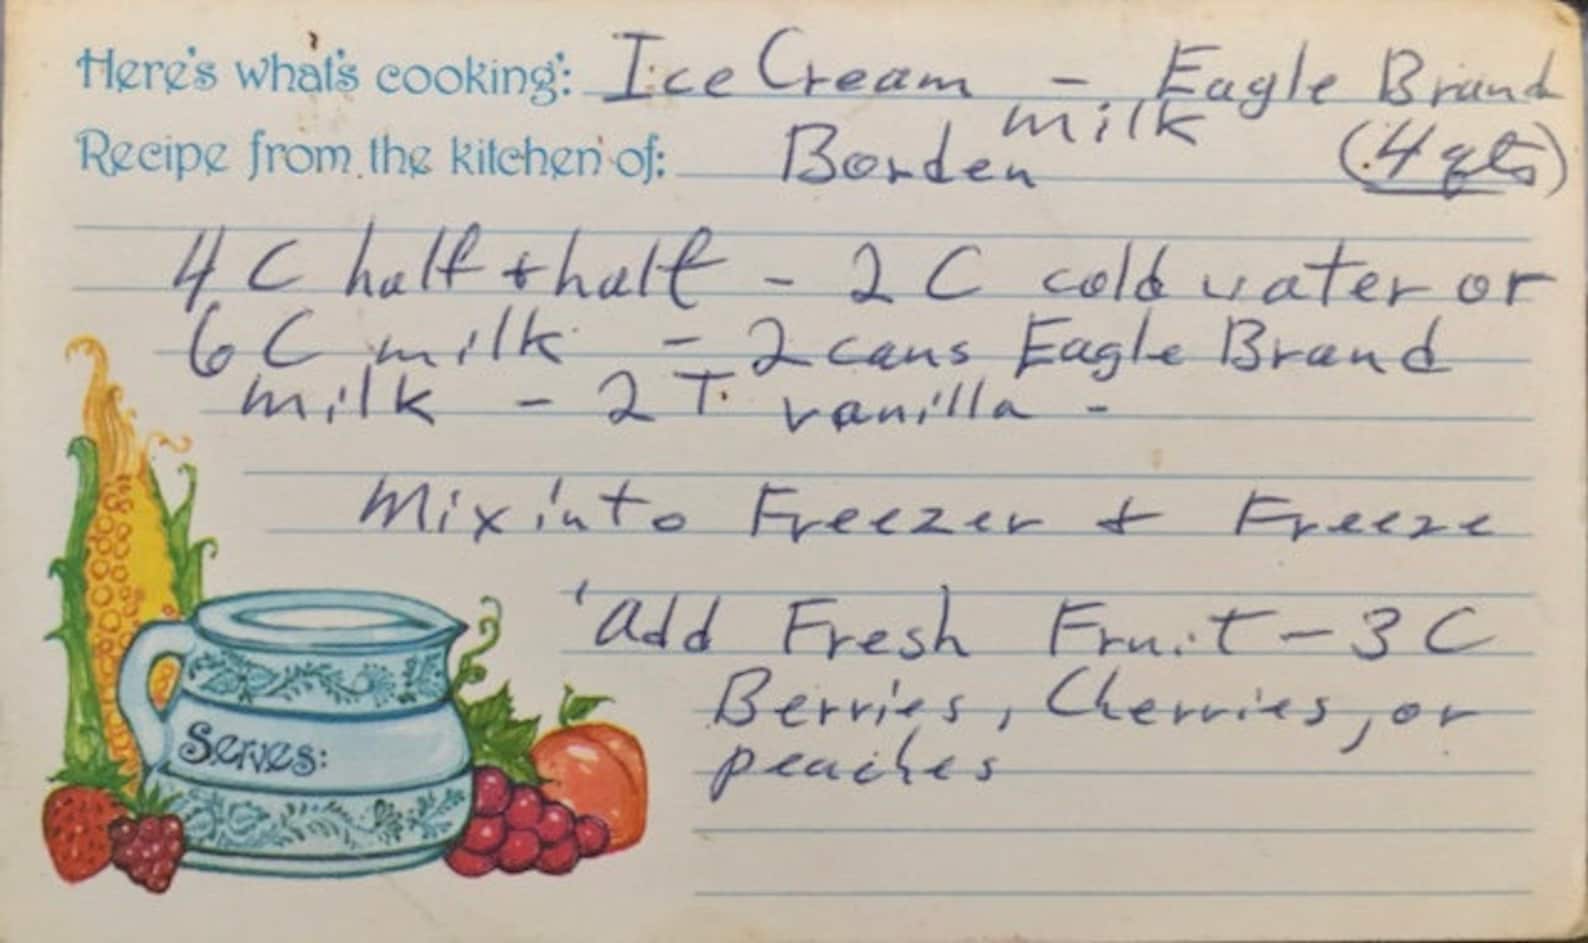 Here's what's cooking: Ice Cream - Eagle Brand
milk
Recipe from the kitchen of: Borden (4 qts)
4 C half + half - 2 C cold water or
6 C milk - 2 cans Eagle Brand
milk - 2 T. vanilla -
Mix into Freezer + Freeze
Add Fresh Fruit - 3 C
Berries, Cherries, or
peaches
Serves: